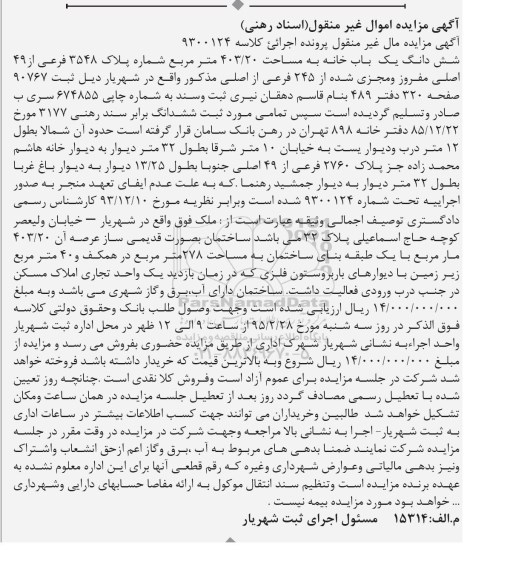 آگهی مزایده اموال غیر منقول(اسناد رهنی)
آگهی مزایده مال غیر منقول پرونده اجرائی کلاسه ۹۳۰۰۱۲۴
شش دانگ یک باب خانه به مساحت ۴۰۳/۲۰ متر مربع شماره پلاک ۳۵۴۸ فرعی از۴۹
اصلی مفروز ومجزی شده از ۲۴۵ فرعی از اصلی مذکور واقع در شهریار ذیل ثبت ۹۰۷۶۷
صفحه ۳۲۰ دفتر ۴۸۹ بنام قاسم دهقان نیری ثبت وسند به شماره چاپی ۶۷۴۸۵۵ سری ب
صادر وتسلیم گردیده است سپس تمامی مورد ثبت ششدانگ برابر سند رهنی ۳۱۷۷ مورخ
۸۵/۱۲/۲۲ دفتر خانه ۸۹۸ تهران در رهن بانک سامان قرار گرفته است حدود آن شمالا بطول
۱۲ متر درب ودیوار یست به خیابان ۱۰ متر شرقا بطول ۳۲ متر دیوار به دیوار خانه هاشم
محمد زاده جز پلاک ۲۷۶۰ فرعی از ۴۹ اصلی جنوبا بطول ۱۳/۲۵ دیوار به دیوار باغ غربا
بطول ۳۲ متر دیوار به دیوار جمشید رهنما .که به علت عدم ایفای تعهد منجر به صدور
اجراییه تحت شماره ۹۳۰۰۱۲۴ شده است وبرابر نظریه مورخ ۹۳/۱۲/۱۰ کارشناس رسمی
دادگستری توصیف اجمالی وثیقه عبارت است از : ملک فوق واقع در شهریار – خیابان ولیعصر
کوچه حاج اسماعیلی پلاک ۳۲ می باشد ساختمان بصورت قدیمی ساز عرصه آن ۴۰۳/۲۰
مار مربع با یک طبقه بنای ساختمان به مساحت ۲۷۸متر مربع در همکف و۴۰ متر مربع
زیر زمین با دیوارهای باربروستون فلزی که در زمان بازدید یک واحد تجاری املاک مسکن
در جنب درب ورودی فعالیت داشت ساختمان دارای آب،برق وگاز شهری می باشد وبه مبلغ
۱۴/۰۰۰/۰۰۰/۰۰۰ ریال ارزیابی شده است وجهت وصول طلب بانک وحقوق دولتی کلاسه
فوق الذکر در روز سه شنبه مورخ ۹۵/۲/۲۸ از ساعت ۹ الی ۱۲ ظهر در محل اداره ثبت شهریار
واحد اجراءبه نشانی شهریار شهرک اداری از طریق مزایده حضوری بفروش می رسد و مزایده از
مبلغ ۱۴/۰۰۰/۰۰۰/۰۰۰ ریال شروع وبه بالاترین قیمت که خریدار داشته باشد فروخته خواهد
شد شرکت در جلسه مزایده برای عموم آزاد است وفروش کلا نقدی است .چنانچه روز تعیین
شده با تعطیل رسمی مصادف گردد روز بعد از تعطیل جلسه مزایده در همان ساعت ومکان
تشکیل خواهد شد طالبین وخریداران می توانند جهت کسب اطلاعات بیشتر در ساعات اداری
به ثبت شهریار- اجرا به نشانی بالا مراجعه وجهت شرکت در مزایده در وقت مقرر در جلسه
مزایده شرکت نمایند ضمنا بدهی های مربوط به آب ،برق وگاز اعم ازحق انشعاب واشتراک
ونیز بدهی مالیاتی وعوارض شهرداری وغیره که رقم قطعی آنها برای این اداره معلوم نشده به
عهده برنده مزایده است وتنظیم سند انتقال موکول به ارائه مفاصا حسابهای دارایی وشهرداری
... خواهد بود مورد مزایده بیمه نیست .
م.الف:۱۵۳۱۴ مسئول اجرای ثبت شهریار
ParsNamadData